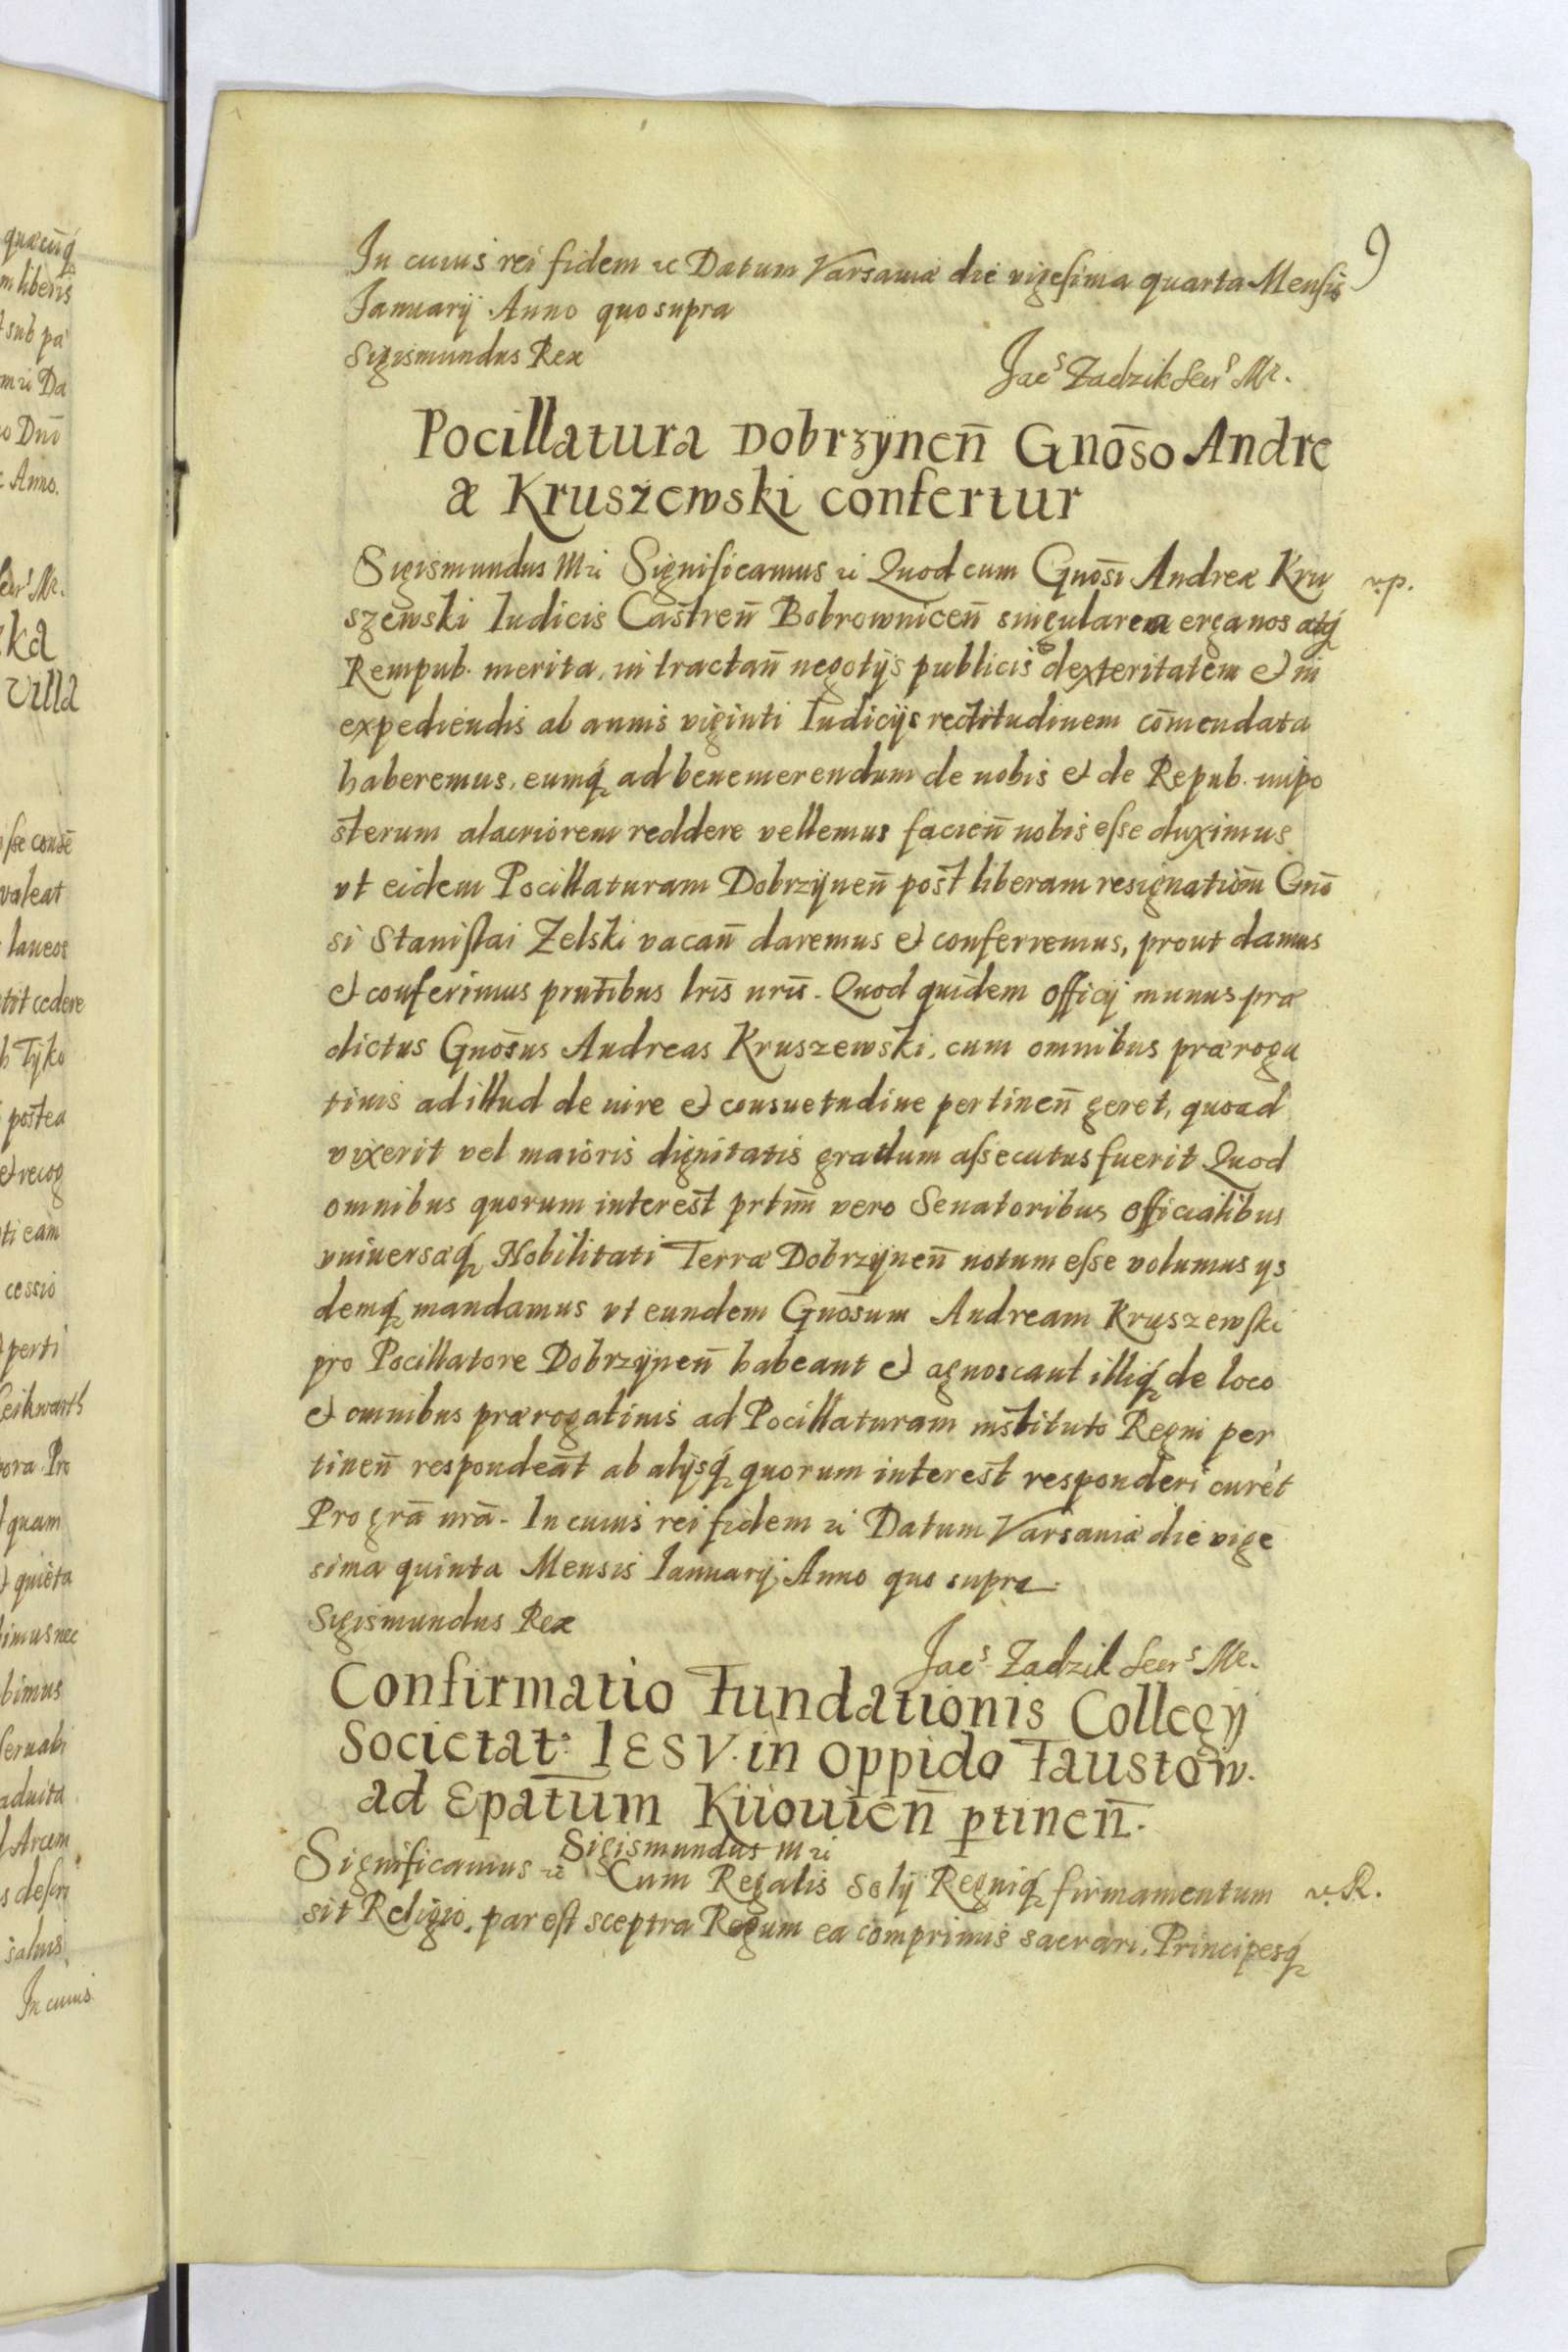 9
In cuius rei fidem ꝛc Datum Varsauiæ die vigesima quarta Mensis
Ianuarÿ Anno quo supra
Sigismundus Rex
Jacˢ Zadzik Secrˢ Mr.
Pocillatura Dobrzÿnen̄ Gnōso Andre
æ Kruszewski confertur
Sigismundus IIIꝛc Significamus ꝛc Quod cum Gnōsi Andreæ Kru
v.p.
szewski Iudicis Castren̄ Bobrownicen̄ singularem erga nos atq́
Rempub. merita, in tractan̄ negotÿs publicis dexteritatem et in
expediendis ab annis viginti Iudicÿs rectitudinem com̄endata
haberemus, eumq́ ad benemerendum de nobis et de Repub. inipo
sterum alacriorem reddere vellemus facien̄ nobis esse duximus
vt eidem Pocillaturam Dobrzÿnen̄ post liberam resignatiōm Gnō
si Stanislai Zelski vacan̄ daremus et conferremus, prout damus
et conferimus prntībus lrīs nrīs. Quod quidem officÿ munus præ
dictus Gnōsus Andreas Kruszewski, cum omnibus præroga
tiuis ad illud de iure et consuetudine pertinen̄ geret, quoad
vixerit vel maioris dignitatis gradum assecutus fuerit Quod
omnibus quorum interest prtim̄ vero Senatoribus officialibus
vniversæq́ Nobilitati Terræ Dobrzÿnen̄ notum esse volumus ys
demq́ mandamus vt eundem Gnōsum Andream Kruszewski
pro Pocillatore Dobrzÿnen̄ habeant et agnoscant illiq́ de loco
et omnibus prærogatiuis ad Pocillaturam instituto Regni per
tinen̄ respondeāt ab alÿsq́ quorum interest responderi curēt
Pro grā nrā. In cuius rei fidem ꝛc Datum Varsauiæ die vige
sima quinta Mensis Ianuarÿ Anno quo supra.
Sigismundus Rex
Jacˢ Zadzik Secrˢ Mr.
Confirmatio Fundationis Collegÿ
Societat: IESV. in oppido Fastow.
ad Epatum̄ Kiiouien̄ ꝑtinen̄.
Sigismundus IIIꝛc
Significamus ꝛc Cum Regalis Solÿ Regniq́ firmamentum
v.R.
sit Religio, par est sceptra Regum ea comprimis sacrari, Principesq́